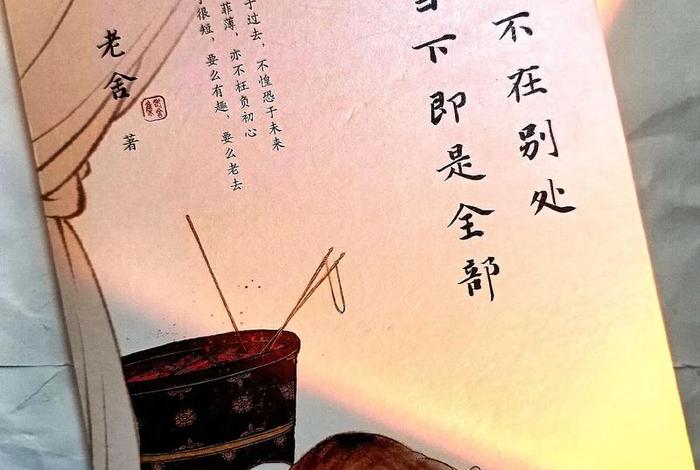 不在别处
当下即是全部
于过去，不惶恐于未来
菲薄，亦不枉负初心
很短，要么有趣，要么老去
老舍
著